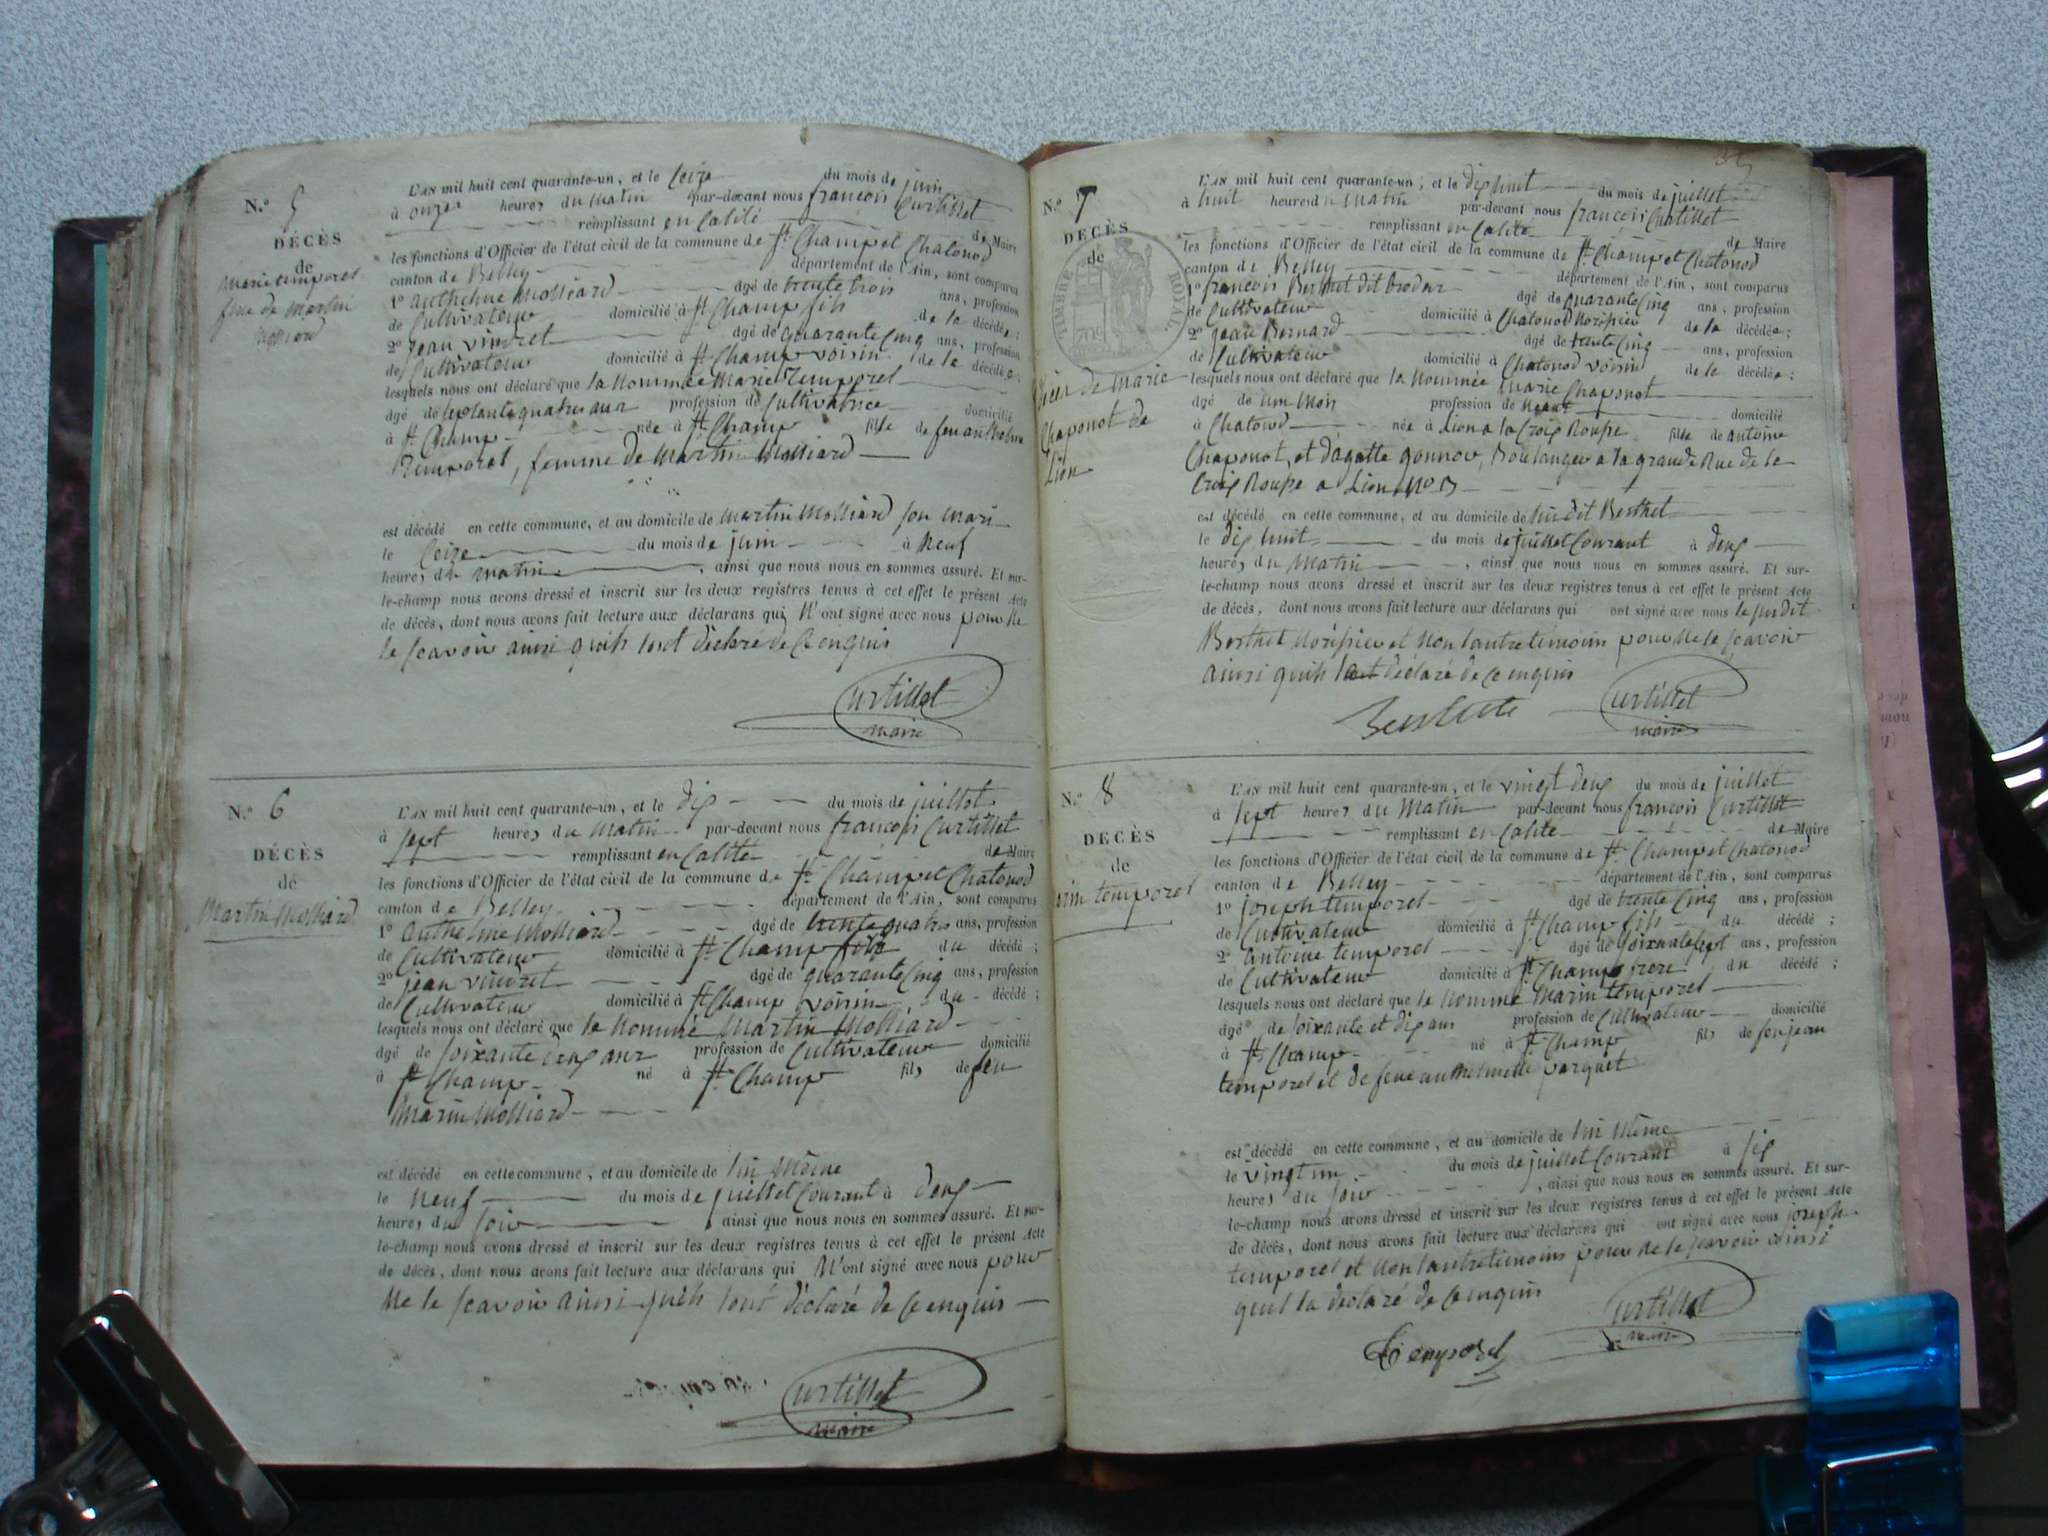 N.º 5
DÉCÈS
de
Marie temporel
fme de Martin
Molliard
L'AN mil huit cent quarante-un, et le Seize du mois de juin
à onze heures du matin par-devant nous françois Curtillet
remplissant en Calité de Maire
les fonctions d'Officier de l'état civil de la commune de St Champ et Chatonod
canton de Belley département de l'Ain, sont comparus
1º anthelme Molliard âgé de trente trois ans, profession
de Cultivateur domicilié à St Champ fils de la décédée;
2º jean vindret âgé de quarante Cinq ans, profession
de Cultivateur domicilié à St Champ voisin de la décédée;
lesquels nous ont déclaré que la Nommée Marie Temporel
âgé de Septante quatre ans profession de Cultivatrice domicilié
à St Champ née à St Champ fille de feu anthelme
Temporel, femme de Martin Molliard
est décédé en cette commune, et au domicile de Martin Molliard son mari
le Seize du mois de juin à Neuf
heures du matin, ainsi que nous nous en sommes assuré. Et sur-
le-champ nous avons dressé et inscrit sur les deux registres tenus à cet effet le présent Acte
de décès, dont nous avons fait lecture aux déclarans qui N'ont signé avec nous pour Ne
le scavoir ainsi quils lont déclaré de Ce enquis
Curtillet
maire
N.º 6
DÉCÈS
de
Martin Molliard
L'AN mil huit cent quarante-un, et le Dix du mois de juillet
à Sept heures du Matin par-devant nous françois Curtillet
remplissant en Calité de Maire
les fonctions d'Officier de l'état civil de la commune de St Champ et Chatonod
canton de Belley département de l'Ain, sont comparus
1º anthelme Molliard âgé de trente quatre ans, profession
de Cultivateur domicilié à St Champ fils du décédé;
2º jean vindret âgé de quarante Cinq ans, profession
de Cultivateur domicilié à St Champ voisin du décédé;
lesquels nous ont déclaré que le Nommé Martin Molliard
âgé de Soixante Deux ans profession de Cultivateur domicilié
à St Champ né à St Champ fils de feu
Marin Molliard
est décédé en cette commune, et au domicile de lui Même
le Neuf du mois de juillet Courant à Deux
heures du Soir, ainsi que nous nous en sommes assuré. Et sur-
le-champ nous avons dressé et inscrit sur les deux registres tenus à cet effet le présent Acte
de décès, dont nous avons fait lecture aux déclarans qui N'ont signé avec nous pour
Ne le scavoir ainsi quils lont déclaré de Ce enquis
Curtillet
maire
N.º 7
DÉCÈS
de
TIMBRE ROYAL
Décès de Marie
Chaponot de
Lion
L'AN mil huit cent quarante-un; et le Dix huit du mois de juillet
à huit heures du matin par-devant nous françois Curtillet
remplissant en Calité de Maire
les fonctions d'Officier de l'état civil de la commune de St Champ et Chatonod
canton de Belley département de l'Ain, sont comparus
1º françois Berthet dit brodeur âgé de quarante Cinq ans, profession
de Cultivateur domicilié à Chatonod Norissier de la décédée;
2º jean Bernard âgé de trente Cinq ans, profession
de Cultivateur domicilié à Chatonod voisin de la décédée;
lesquels nous ont déclaré que la Nommée Marie Chaponot
âgé de un Mois profession de Néant domicilié
à Chatonod née à Lion a la Croix Rousse fille de antoine
Chaponot, et d'agatte gonnov, Boulanger a la grande Rue de la
Croix Rousse a Lion
est décédé en cette commune, et au domicile de Sus dit Berthet
le dix huit du mois de juillet Courant à deux
heures du Matin, ainsi que nous nous en sommes assuré. Et sur-
le-champ nous avons dressé et inscrit sur les deux registres tenus à cet effet le présent Acte
de décès, dont nous avons fait lecture aux déclarans qui ont signé avec nous le susdit
Berthet Norissier et Non lautre témoin pour Ne le scavoir
ainsi quils lont déclaré de Ce enquis
Curtillet
maire
N.º 8
DÉCÈS
de
temporel
L'AN mil huit cent quarante-un, et le vingt deux du mois de juillet
à Sept heures du Matin par-devant nous françois Curtillet
remplissant en Calité de Maire
les fonctions d'Officier de l'état civil de la commune de St Champ et Chatonod
canton de Belley département de l'Ain, sont comparus
1º joseph temporel âgé de trente Cinq ans, profession
de Cultivateur domicilié à St Champ fils du décédé;
2º antoine temporel âgé de Soixante Sept ans, profession
de Cultivateur domicilié à St Champ frere du décédé;
lesquels nous ont déclaré que le Nommé Marin temporel
âgé de Soixante et dix ans profession de Cultivateur domicilié
à St Champ né à St Champ fils de feu jean
temporel et de feue anthelmette parquet
est décédé en cette commune, et au domicile de lui Même
le vingt un du mois de juillet Courant à Six
heures du Soir, ainsi que nous nous en sommes assuré. Et sur-
le-champ nous avons dressé et inscrit sur les deux registres tenus à cet effet le présent Acte
de décès, dont nous avons fait lecture aux déclarans qui ont signé avec nous joseph
temporel et Non lautre témoins pour Ne le scavoir ainsi
quil la déclaré de Ce enquis
Temporel
Curtillet
maire